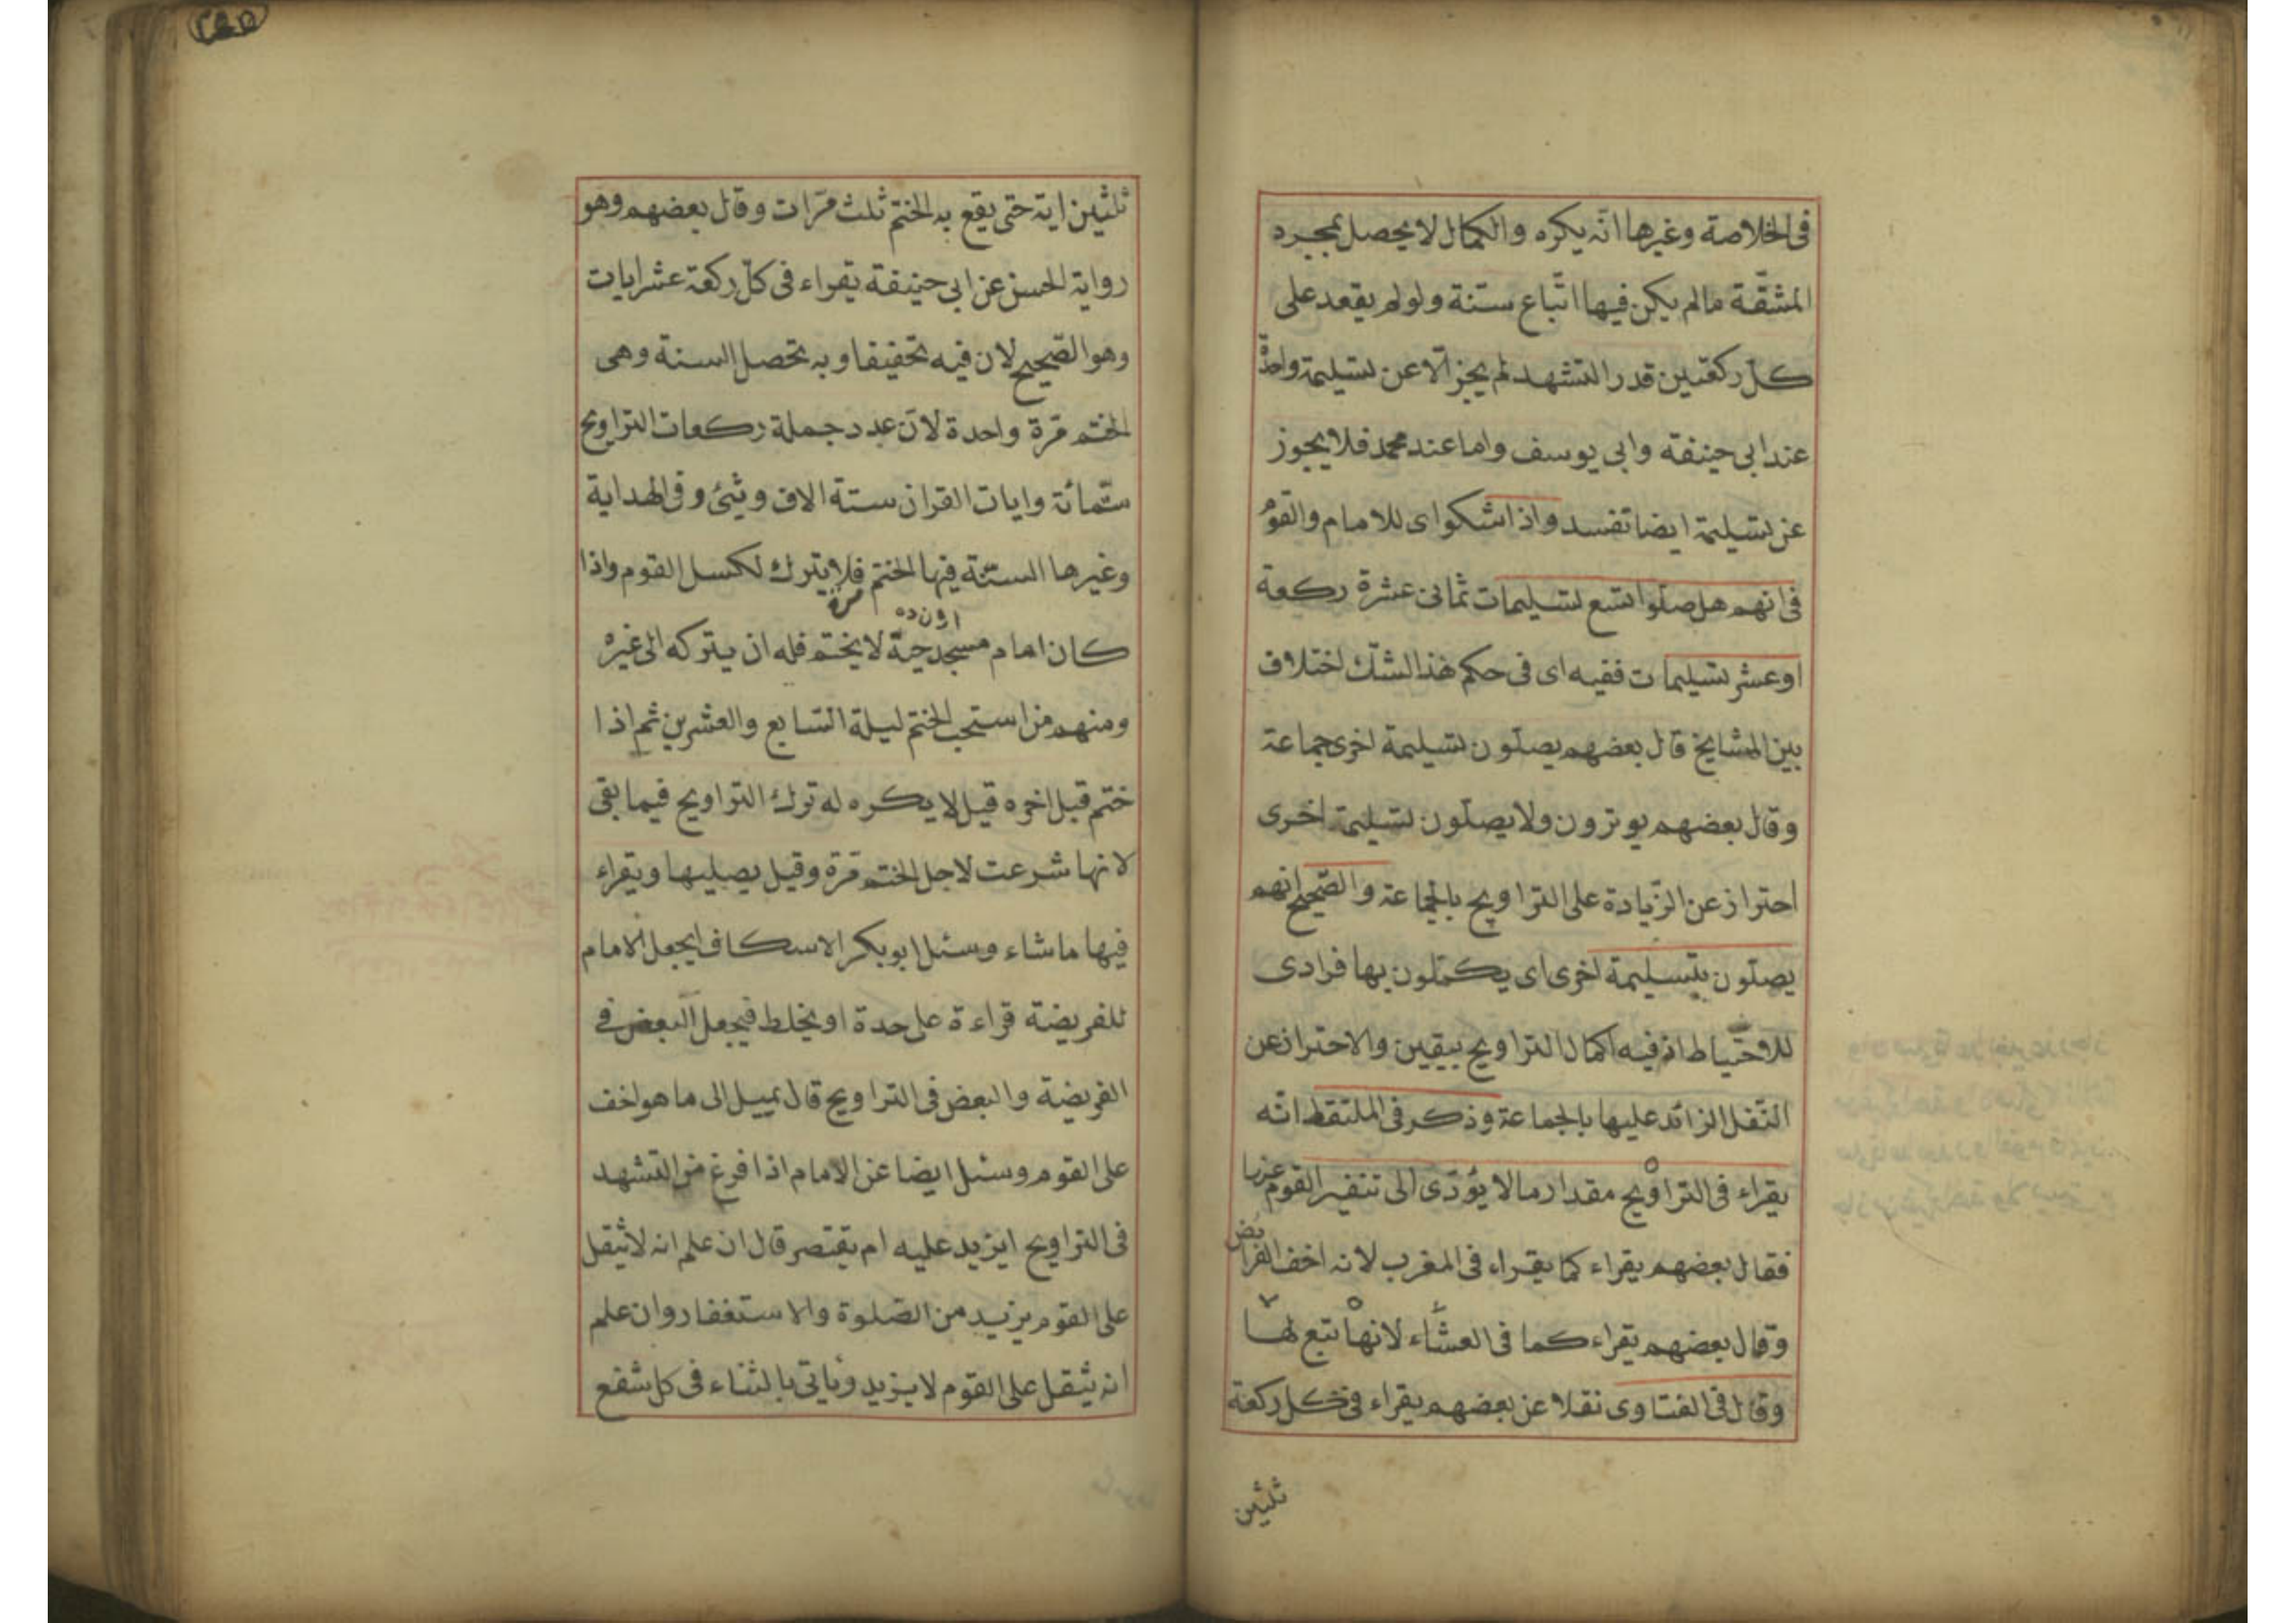 فى الخلاصة وغيرها انه يكره والكمال لا يحصل بمجرد
المشقّة مالم يكن فيها اتّباع ستنة ولو لم يقعد على
كلّ ركعتين قدر التشهد لم يجز الّا عن تسليمة واحدة
عند ابى حنيفة وابى يوسف واما عند محمد فلا يجوز
عن تسليمة ايضا تفسد واذا شكوا اى للامام والقوم
فى انهم هل صلّوا تسع تسليمات ثمانى عشرة ركعة
او عشر تسليمات ففيه اى فى حكم هذا الشّك اختلاف
بين المشايخ قال بعضهم يصلّون تسليمة اخرى جماعة
وقال بعضهم يوترون ولا يصلّون تسليمة اخرى
احتراز عن الزّيادة على التراويح بالجماعة والصّحيح انهم
يصلّون بتسليمة اخرى اى يكملون بها فرادى
للاحتياط اذ فيه اكمال التراويح بيقين والاحتراز عن
النّفل الزائد عليها بالجماعة وذكر فى الملتقط انّه
يقراء فى التراويح مقدار ما لا يؤدّى الى تنفير القوم عنها
فقال بعضهم يقراء كما يقراء فى المغرب لانه اخف الفرائض
وقال بعضهم يقراء كما فى العشاء لانها تبع لها
وقال فى الفتاوى نقلا عن بعضهم يقراء فى كل ركعة
ثلثين
٢٩٥
ثلثين اية حتى يقع به الختم ثلث مرّات وقال بعضهم وهو
رواية الحسن عن ابى حنيفة يقراء فى كلّ ركعة عشر ايات
وهو الصّحيح لان فيه تخفيفا وبه تحصل السنة وهى
الختم مرّة واحدة لانّ عدد جملة ركعات التراويح
ستّمائة وايات القران ستة الاف وشئ وفى الهداية
وغيرها السنّة فيها الختم مرة فلا يترك لكسل القوم واذا
كان امام مسجد حيّه لا يختم فله ان يتركه الى غيره
ومنهم من استحب الختم ليلة السّابع والعشرين ثم اذا
ختم قبل اخره قيل لا يكره له ترك التراويح فيما بقى
لانها شرعت لاجل الختم مرّة وقيل يصليها ويقراء
فيها ما شاء وسئل ابو بكر الاسكاف ايجعل الامام
للفريضة قراءة على حدة او يخلط فيجعل البعض فى
الفريضة والبعض فى التراويح قال يميل الى ما هو اخف
على القوم وسئل ايضا عن الامام اذا فرغ من التشهد
فى التراويح ايزيد عليه ام يقتصر قال ان علم انه لا يثقل
على القوم يزيد من الصّلوة والاستغفار وان علم
انه يثقل على القوم لا يزيد وياتى بالثناء فى كل شفع